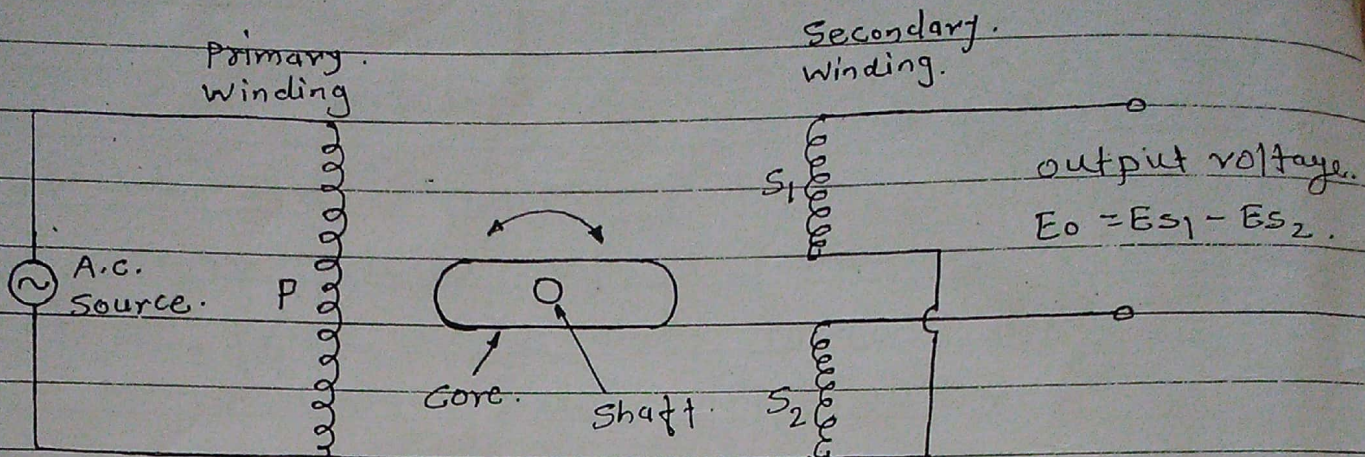 Primary.
Winding
Secondary.
Winding.
S1
output voltage.
Eo = Es1 - Es2.
A.C.
Source.
P
Core.
Shaft.
S2